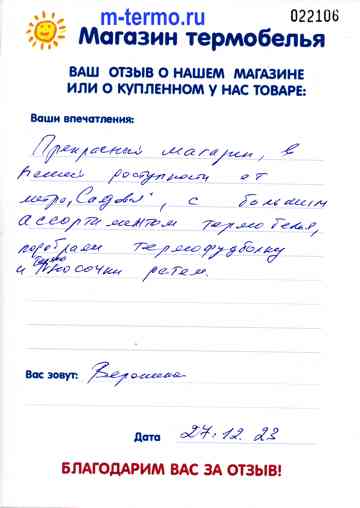 m-termo.ru
022106
Магазин термобелья
ВАШ ОТЗЫВ О НАШЕМ МАГАЗИНЕ
ИЛИ О КУПЛЕННОМ У НАС ТОВАРЕ:
Ваши впечатления:
Прекрасный магазин, в
пешей доступности от
метро "Садовая", с большим
ассортиментом термобелья,
подобрали термофудболку
и термоносочки детям.
Вас зовут: Вероника
Дата 27.12.23
БЛАГОДАРИМ ВАС ЗА ОТЗЫВ!